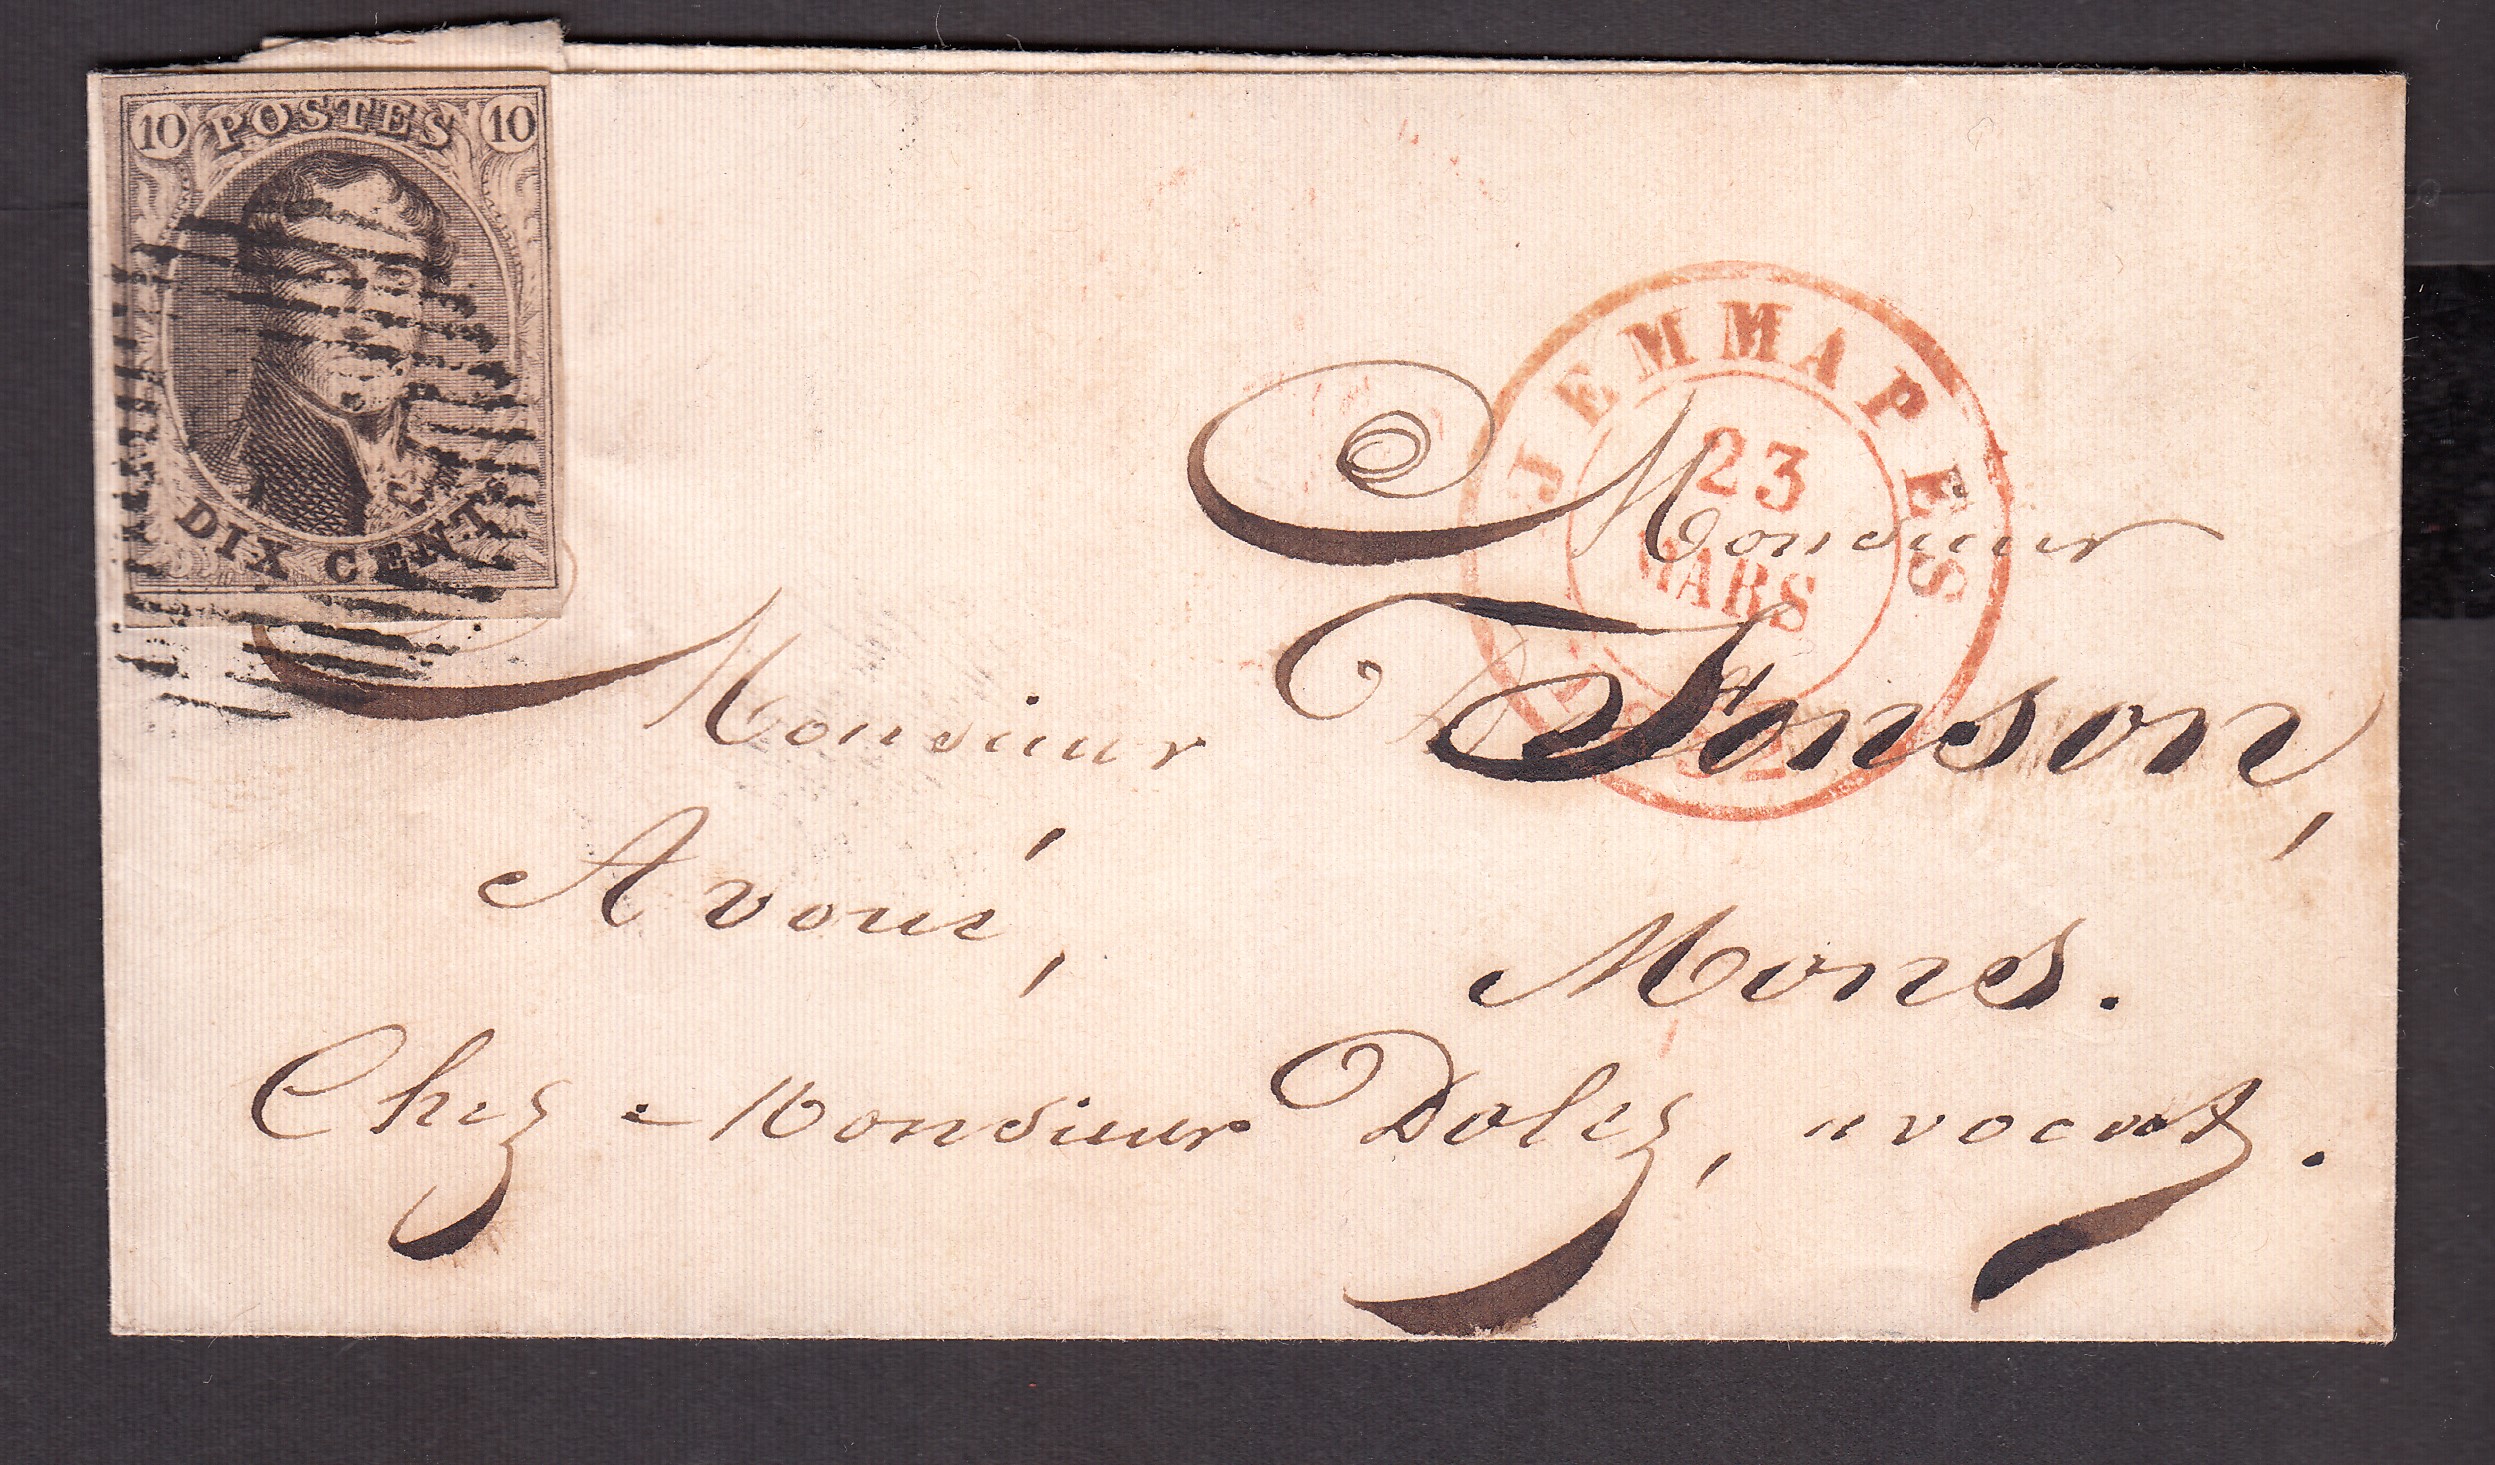 10 POSTES 10
DIX CENT
JEMMAPES
23
MARS
Monsieur
Monsieur Fonson,
Avoué, Mons.
Chez Monsieur Dolez, avocat.